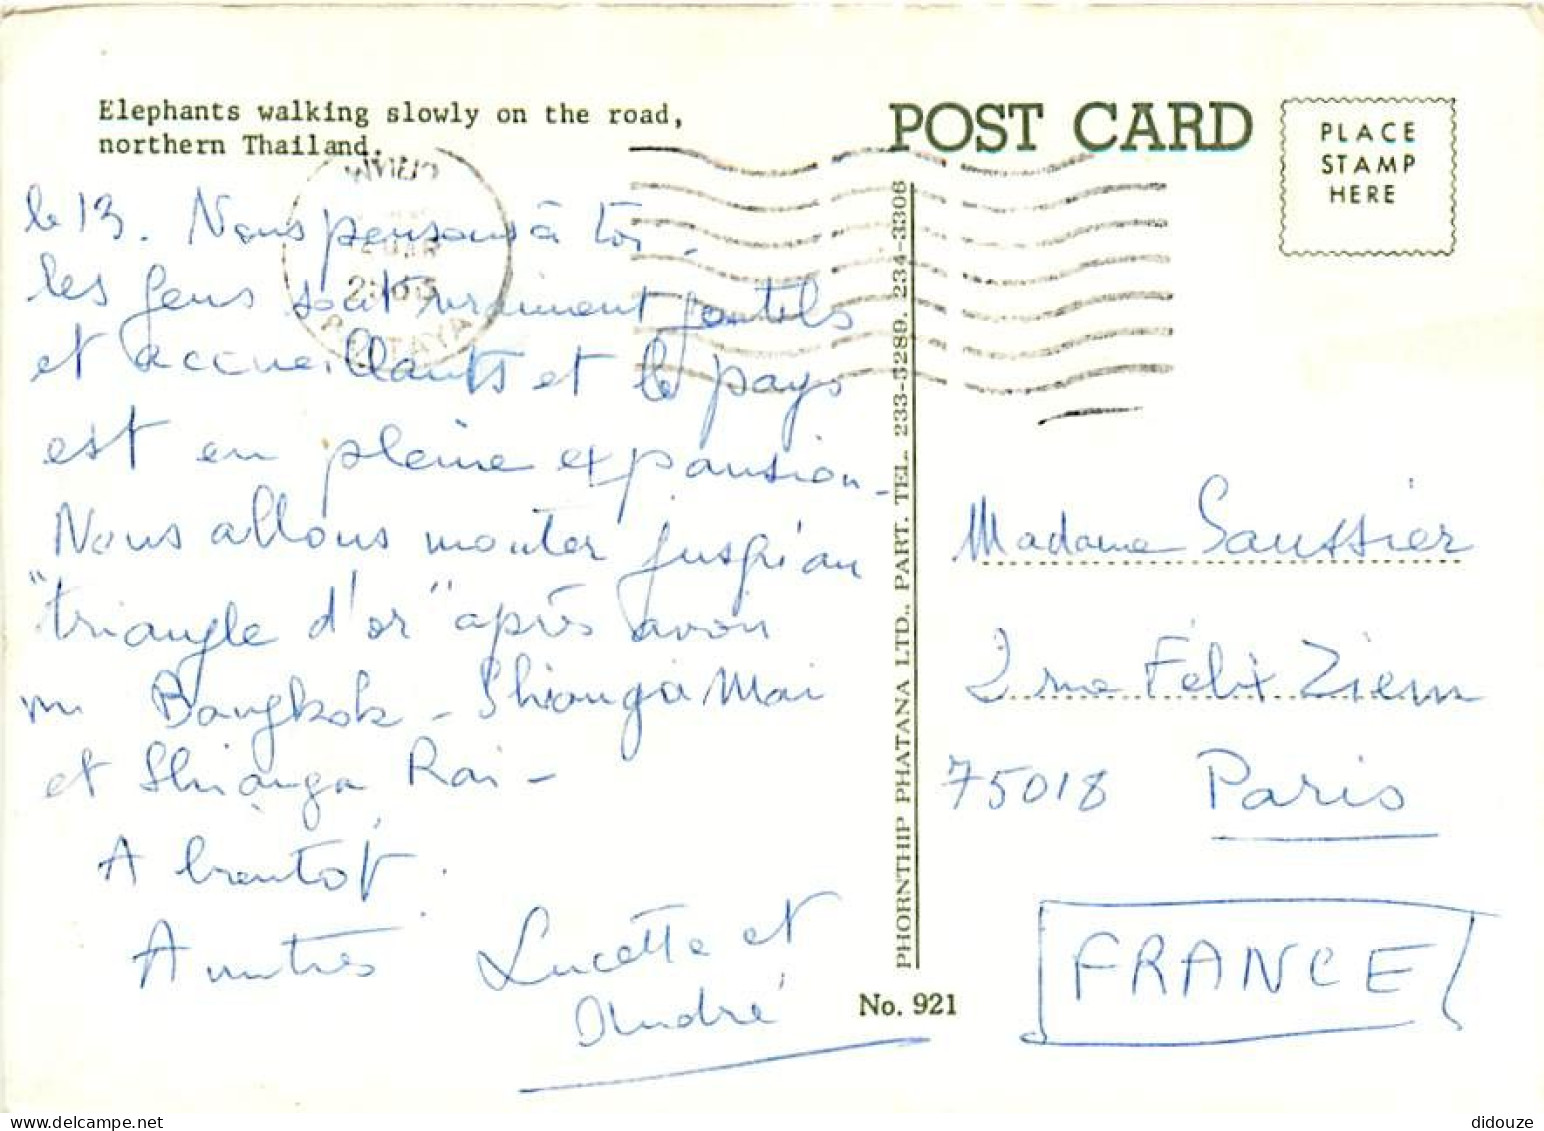 Elephants walking slowly on the road,
northern Thailand.
POST CARD
PLACE
STAMP
HERE
PATTAYA
le 13. Nous pensons à toi.
les gens sont vraiment gentils
et accueillants et le pays
est en pleine expansion.
Nous allons monter jusqu'au
"triangle d'or" après avoir
vu Bangkok - Shianga Mai
et Shianga Rai -
A bientôt.
Amitiés Lucette et
André
PHORNTHIP PHATANA LTD., PART. TEL. 233-3289, 234-3306
No. 921
Madame Saussier
2 rue Félix Ziem
75018 Paris
FRANCE
didouze